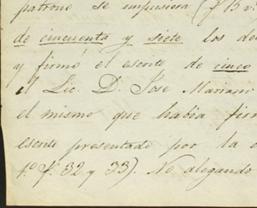 patrono se impusiera (f. 13 v.
de cincuenta y siete los de
y firmó el escrito de cinco
el Lic. D. Jose Mariano
el mismo que habia fir
escrito presentado por la
fs. 32 y 33). No alegando